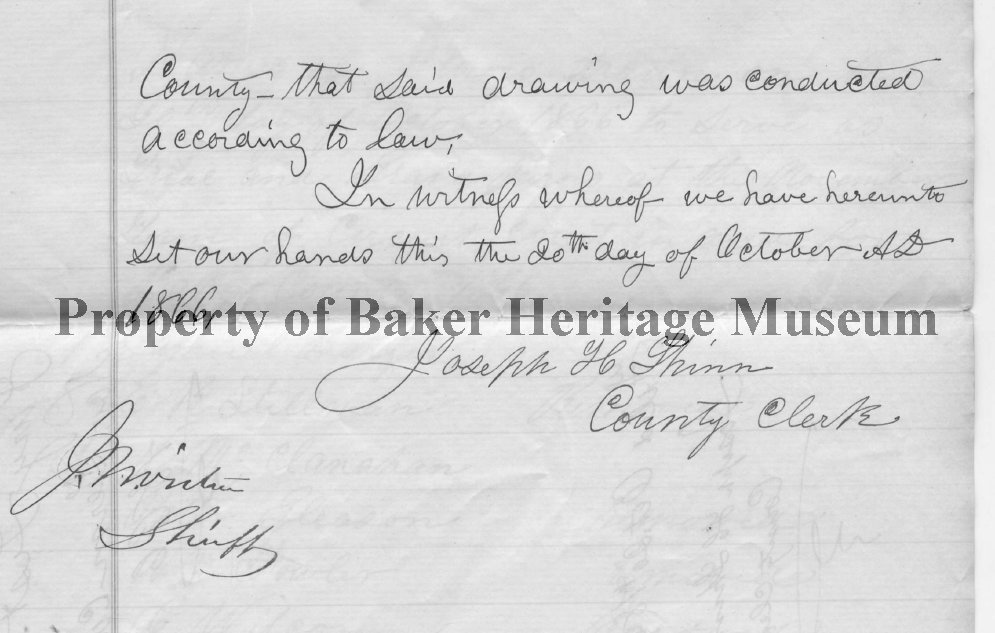 County – that said drawing was conducted
according to law,
In witness whereof we have hereunto
set our hands this the 20th day of October AD
1866,
Property of Baker Heritage Museum
Joseph H Shinn
County Clerk
J.
Sheriff
Clanahan